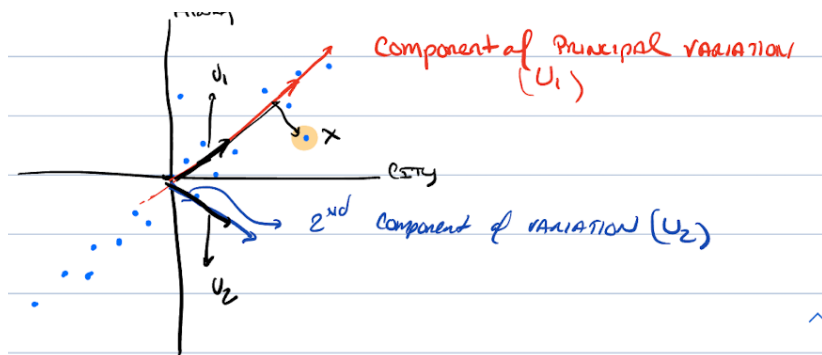 Component of PRINCIPAL VARIATION
(U1)
U1
X
CITY
2nd Component of VARIATION (U2)
U2